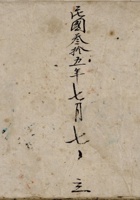 民國叁拾五年七月七日立